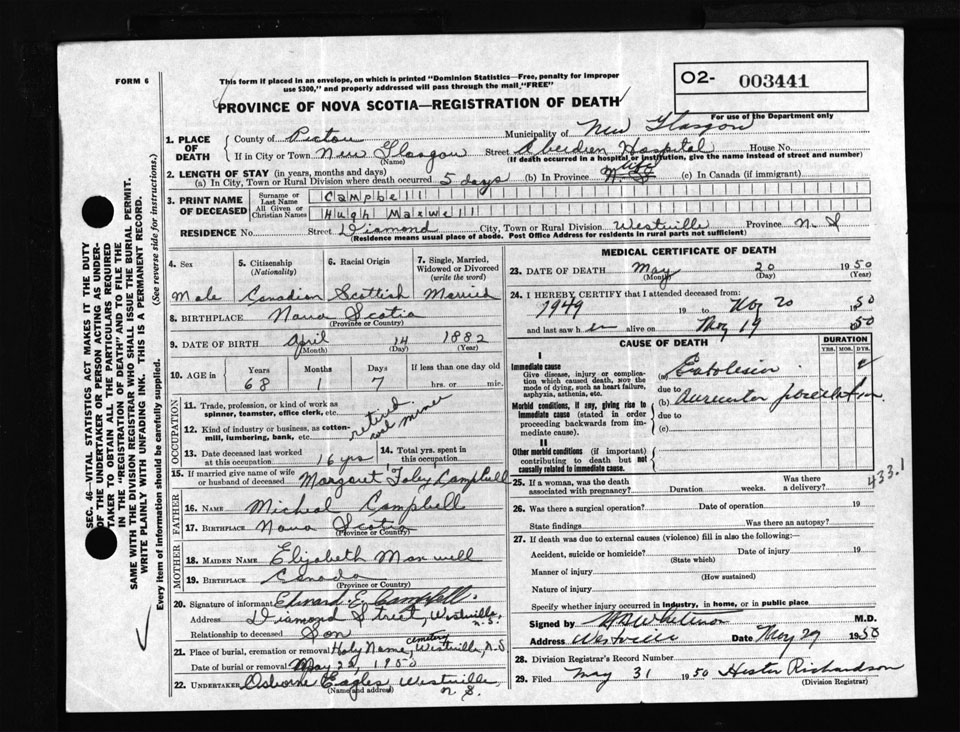 FORM 6
This form if placed in an envelope, on which is printed "Dominion Statistics—Free, penalty for improper
use $300," and properly addressed will pass through the mail "FREE"
O2- 003441
PROVINCE OF NOVA SCOTIA—REGISTRATION OF DEATH
For use of the Department only
1. PLACE OF DEATH
County of Pictou Municipality of New Glasgow
If in City or Town New Glasgow (Name) Street Aberdeen Hospital House No.
(If death occurred in a hospital or institution, give the name instead of street and number)
2. LENGTH OF STAY (in years, months and days)
(a) In City, Town or Rural Division where death occurred 5 days (b) In Province life (c) In Canada (if immigrant)
3. PRINT NAME OF DECEASED
Surname or Last Name Campbell
All Given or Christian Names Hugh Maxwell
RESIDENCE No. Street Diamond City, Town or Rural Division Westville Province N.S
(Residence means usual place of abode. Post Office Address for residents in rural parts not sufficient)
4. Sex Male
5. Citizenship (Nationality) Canadian
6. Racial Origin Scottish
7. Single, Married, Widowed or Divorced (write the word) Married
8. BIRTHPLACE Nova Scotia
(Province or Country)
9. DATE OF BIRTH April 14 1882
(Month) (Day) (Year)
10. AGE in Years 68 Months 1 Days 7 If less than one day old hrs. or min.
OCCUPATION
11. Trade, profession, or kind of work as spinner, teamster, office clerk, etc.
12. Kind of industry or business, as cotton-mill, lumbering, bank, etc.
retired coal miner
13. Date deceased last worked at this occupation 16 yrs
14. Total yrs. spent in this occupation
15. If married give name of wife or husband of deceased Margaret Foley Campbell
FATHER
16. NAME Micheal Campbell
17. BIRTHPLACE Nova Scotia
(Province or Country)
MOTHER
18. MAIDEN NAME Elizabeth Maxwell
19. BIRTHPLACE Canada
(Province or Country)
20. Signature of informant Edward E. Campbell.
Address Diamond Street, Westville, N.S.
Relationship to deceased Son
21. Place of burial, cremation or removal Holy Name, cemetery Westville, N.S
Date of burial or removal May 1950
22. Undertaker Osborne Eagles, Westville, N.S.
(Name and address)
MEDICAL CERTIFICATE OF DEATH
23. DATE OF DEATH May 20 1950
(Month) (Day) (Year)
24. I HEREBY CERTIFY that I attended deceased from:
1949 19 to May 20 1950
and last saw h alive on May 19 1950
CAUSE OF DEATH
DURATION
YRS. MOS. DYS.
I
Immediate cause
Give disease, injury or complication which caused death, not the mode of dying, such as heart failure, asphyxia, asthenia, etc.
(a)
due to
Morbid conditions, if any, giving rise to immediate cause (stated in order proceeding backwards from immediate cause).
(b)
due to
(c)
II
Other morbid conditions (if important) contributing to death but not causally related to immediate cause.
433.1
25. If a woman, was the death associated with pregnancy? Duration weeks. Was there a delivery?
26. Was there a surgical operation? Date of operation 19
State findings Was there an autopsy?
27. If death was due to external causes (violence) fill in also the following:—
Accident, suicide or homicide? (State which) Date of injury 19
Manner of injury (How sustained)
Nature of injury
Specify whether injury occurred in industry, in home, or in public place
Signed by M.D.
Address Westville Date May 29 1950
28. Division Registrar's Record Number
29. Filed May 31 1950 Hester Richardson
(Division Registrar)
SEC. 46—VITAL STATISTICS ACT MAKES IT THE DUTY
OF THE UNDERTAKER OR PERSON ACTING AS UNDER-
TAKER TO OBTAIN ALL THE PARTICULARS REQUIRED
IN THE "REGISTRATION OF DEATH" AND TO FILE THE
SAME WITH THE DIVISION REGISTRAR WHO SHALL ISSUE THE BURIAL PERMIT.
WRITE PLAINLY WITH UNFADING INK. THIS IS A PERMANENT RECORD.
Every item of information should be carefully supplied. (See reverse side for instructions.)